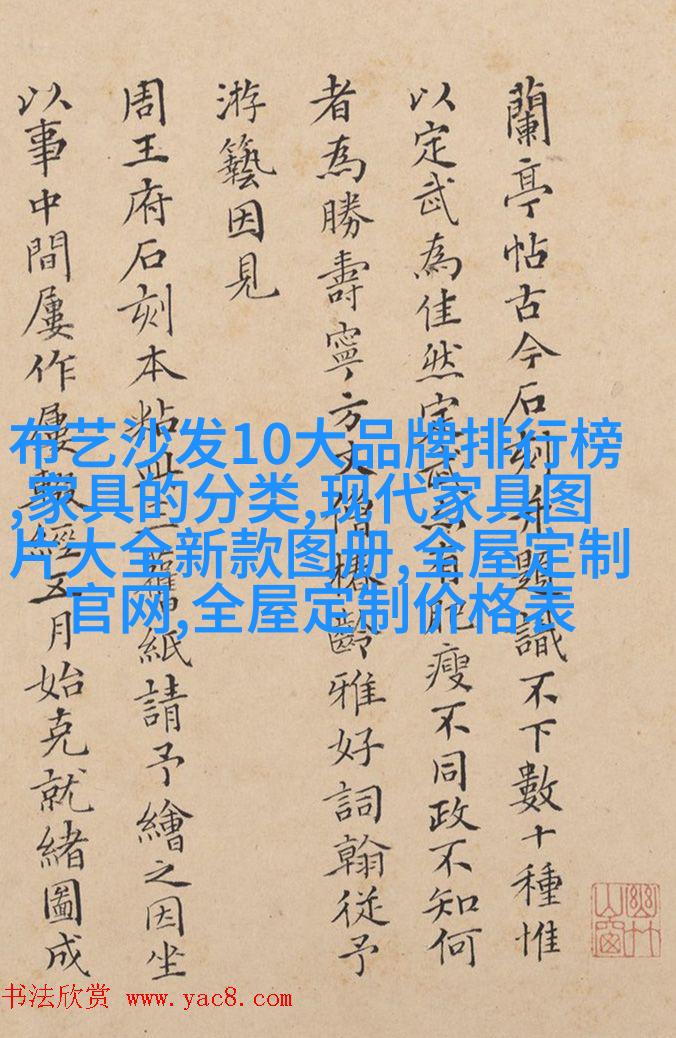 蘭亭帖古今石刻并題識不下數十種惟
以定武為佳然定武亦有肥瘦不同政不知何
者為勝壽寧方丈椿齡雅好詞翰從予
游藝因見
周王府石刻本粘冊舊紙請予繪之因坐
以事中間屢作屢輟經五月始克就緒圖成
幽竹山窗
布艺沙发10大品牌排行榜
,家具的分类,现代家具图
片大全新款图册,全屋定制
官网,全屋定制价格表
书法欣赏 www.yac8.com